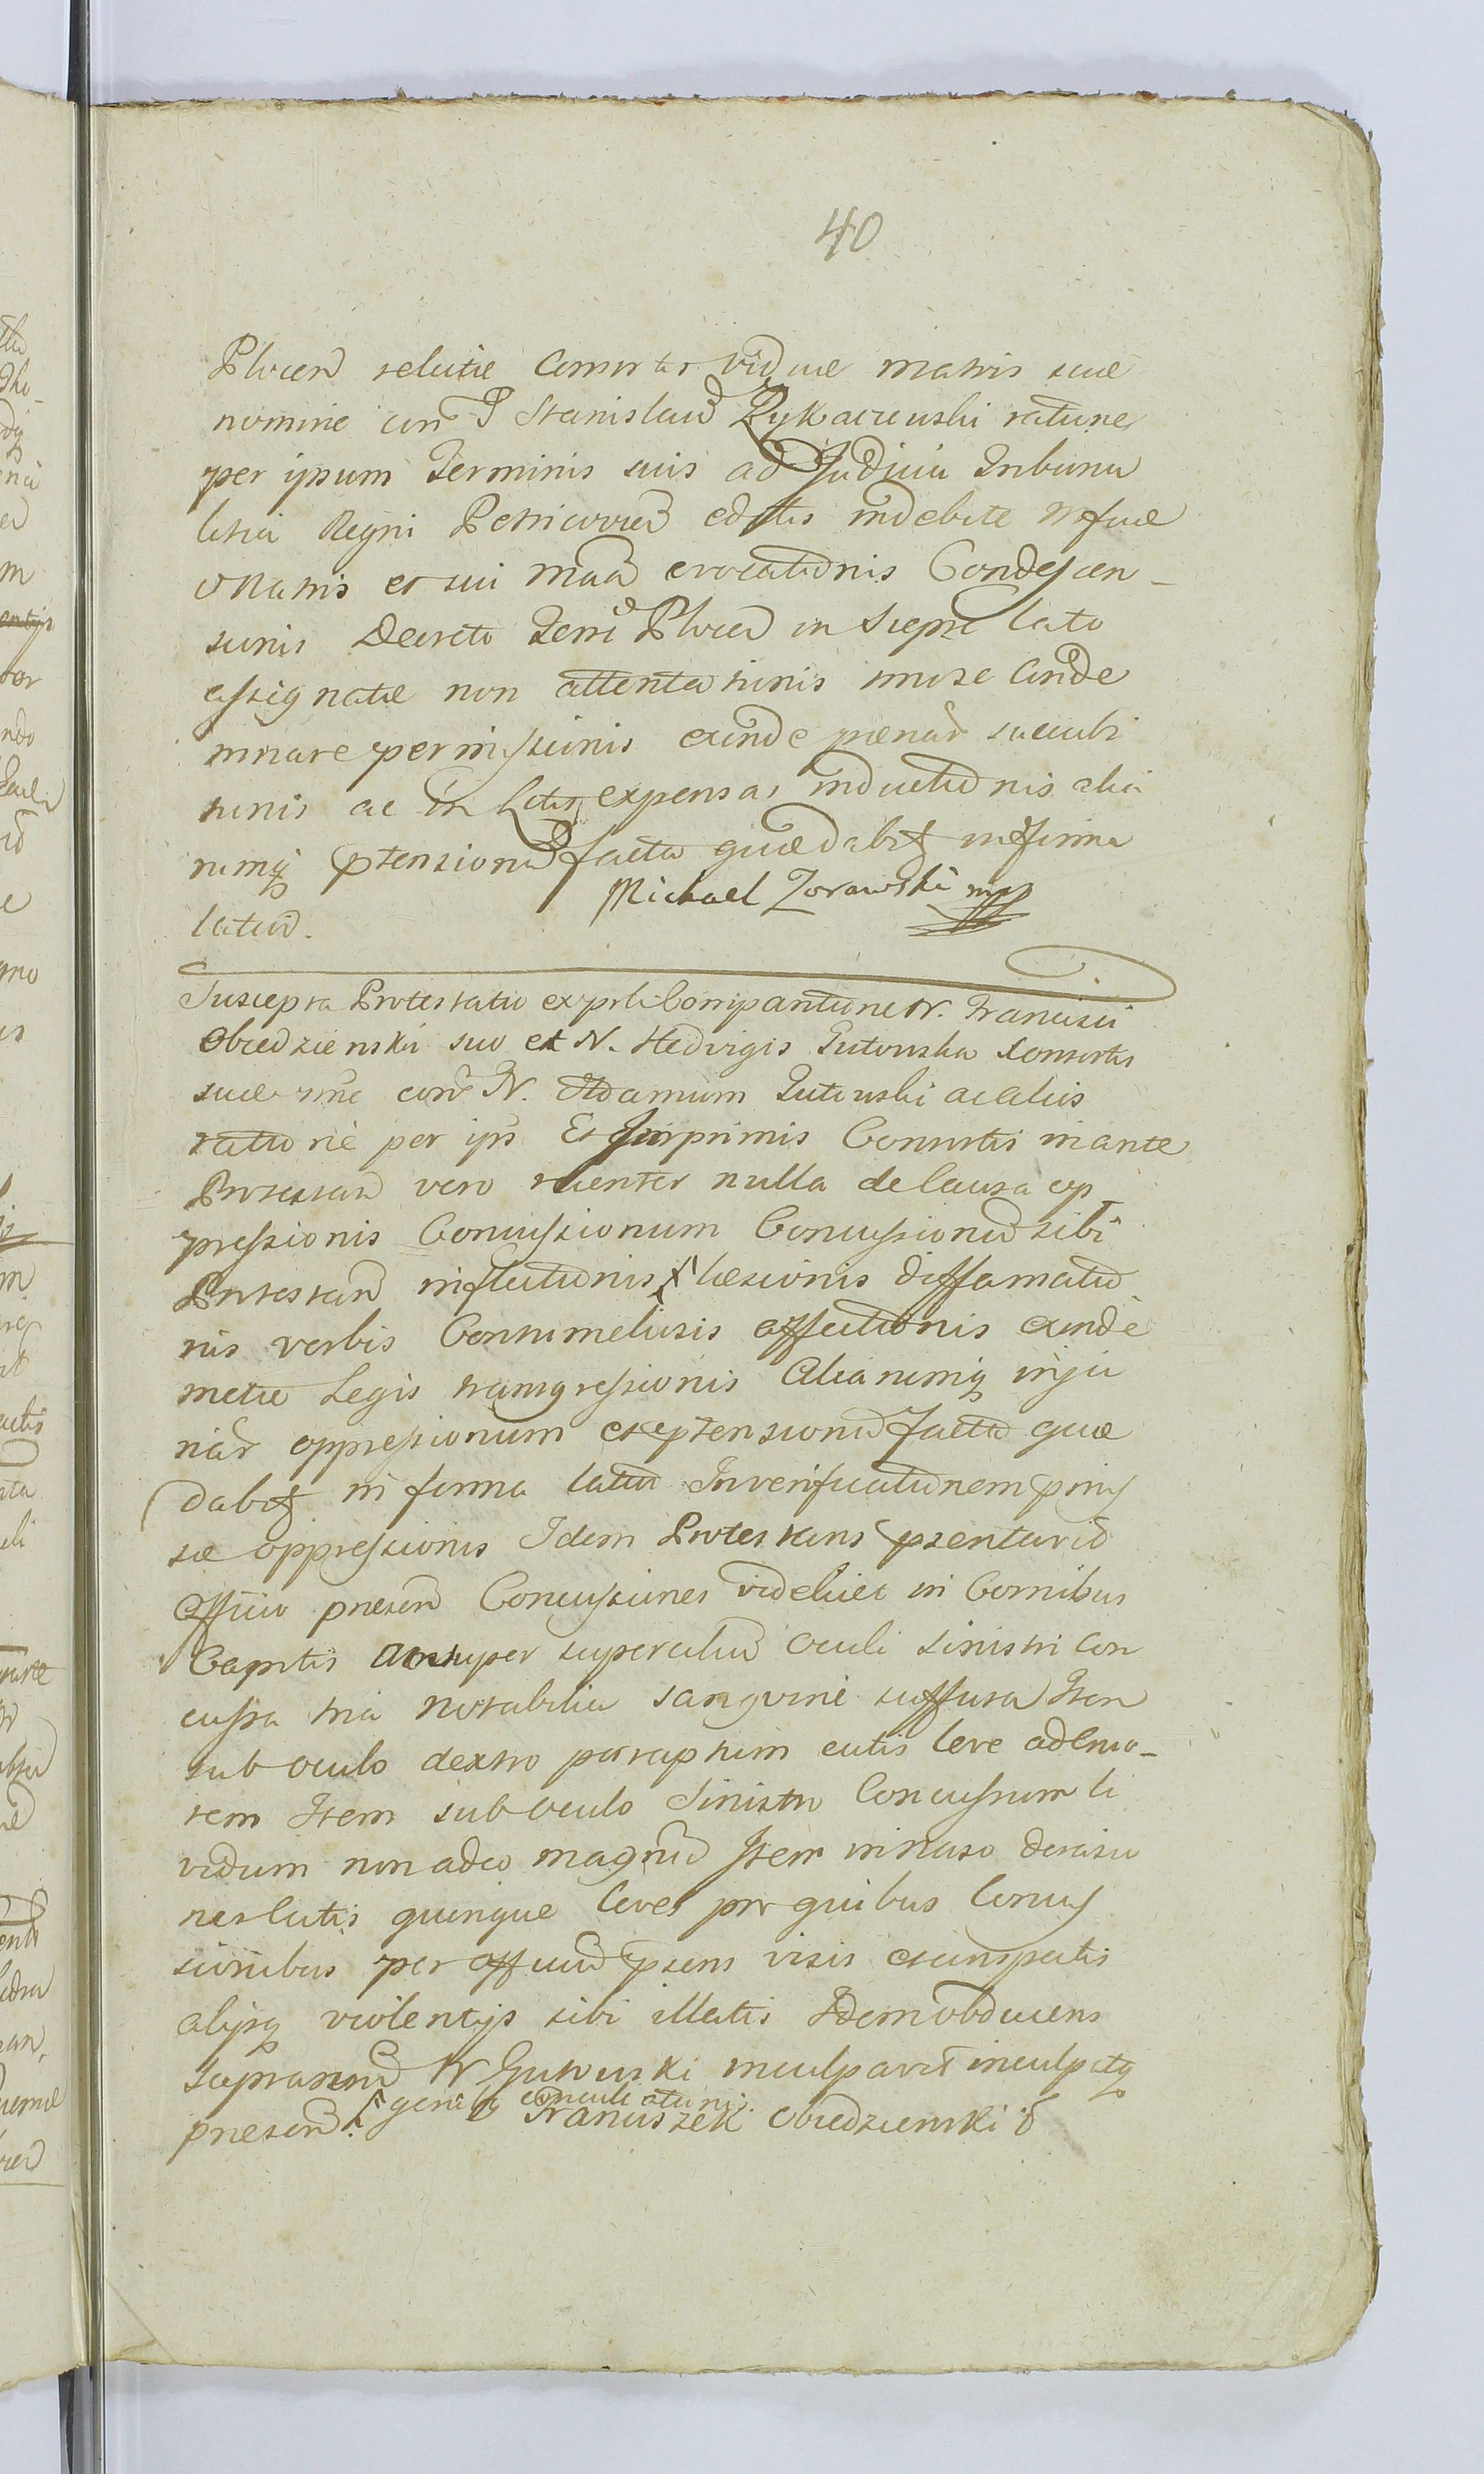 40
Plocen relictæ Consortis viduæ matris suæ
nomine con G Stanislaum Rykaczewski ratione
per ipsum Terminis suis ad Judicia Tribuna
litia Regni Petricovien editis indebite
Matris et sui evocationis Condescen-
sionis Decreto Terr Plocen in Sierpc lato
assignatæ non attentationis imo se conde
mnare permissionis exinde pænar succubi
tionis ac in litis expensas inductionis alia
rumq ptensionu facta quæ dabit in forma
latiu.
Michael Zorawski mp
Suscepta Protestatio ex psli Comparitione N. Francisci
Obiedzienski suo et N. Hedvigis Gutowska Consortis
suæ nne con N. Adamum Gutowski ac aliis
ratione per ips Et Inprimis Consortis in ante
Protestan vero recenter nulla de causa op
pressionis Convissionum Concussionu sibi
Protestan inflictionis X læsionis diffamatio
nis verbis Contumeliosis affectionis exinde
metæ Legis transgressionis Aliarumq inju
riar oppressionum et ptensionu facta quæ
dabit in forma latiu In verificationem pmis
sæ oppressionis Idem Protestans psentavid
Officio presen Concussiones videlicet in Cornibus
Capitis ac super supercilium oculi sinistri con
cussa tria notabilia sanguine suffusa Item
sub oculo dextro parraptum cutis leve ad cruo-
rem Item sub oculo Sinistro Concussum li
vidum non adeo magnu Item in naso
nes cutis quinque leves pro quibus Concus
sionibus per officiu psens visis conspectis
alijsq violentijs sibi illatis Idem obducens
supranno N Gutowski inculpavit inculpatq
presen. X genibq conculcationis.
Franciszek Obiedzienski